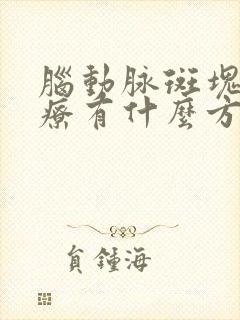 腦動脉斑塊
療有什麼方
負鍾海